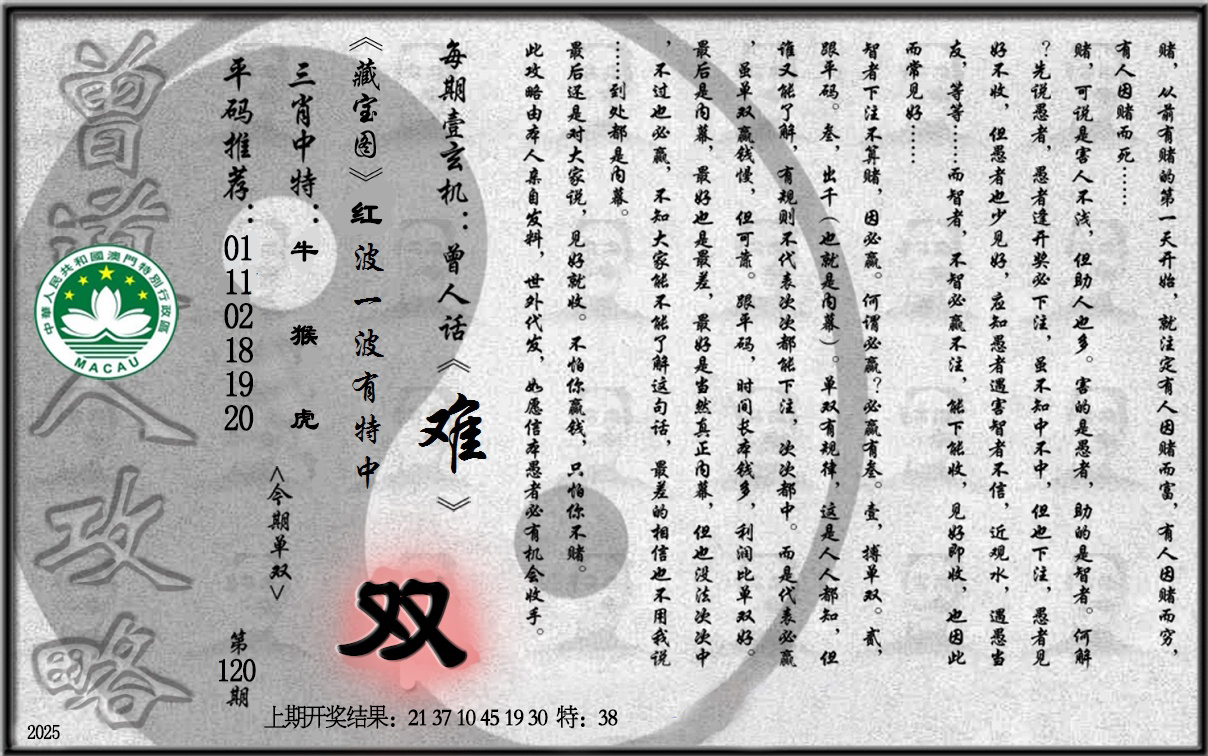 赌，从前有赌的第一天开始，就注定有人因赌而富，有人因赌而穷，
有人因赌而死……
赌，可说是害人不浅，但助人也多。害的是愚者，助的是智者。何解
？先说愚者，愚者逢开奖必下注，虽不知中不中，但也下注，愚者见
好不收，但愚者也少见好，应知愚者遇害智者不信，近观水，遇愚当
友，等等……而智者，不智必赢不注，能下能收，见好即收，也因此
而常见好……
智者下注不算赌，因必赢。何谓必赢？必赢有叁。壹，搏单双。贰，
跟平码。叁，出千（也就是内幕）。单双有规律，这是人人都知，但
谁又能了解，有规则不代表次次都能下注，次次都中。而是代表必赢
，虽单双赢钱慢，但可靠。跟平码，时间长本钱多，利润比单双好。
最后是内幕，最好也是最差，最好是当然真正内幕，但也没法次次中
，不过也必赢，不知大家能不能了解这句话，最差的相信也不用我说
……到处都是内幕。
最后还是对大家说，见好就收。不怕你赢钱，只怕你不赌。
此攻略由本人亲自发料，世外代发，如愿信本愚者必有机会收手。
每期壹玄机：曾人话《难》
《藏宝图》红波一波有特中
双
三肖中特：牛 猴 虎
<今期单双>
平码推荐：01 11 02 18 19 20
第120期
曾道人攻略
中華人民共和國澳門特別行政區
MACAU
上期开奖结果：21 37 10 45 19 30 特：38
2025